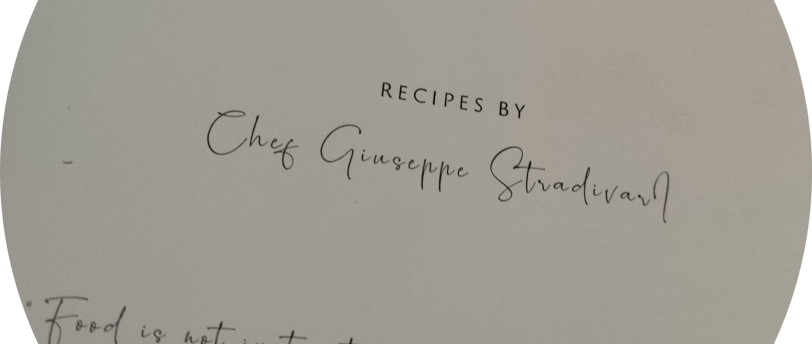 RECIPES BY
Chef Giuseppe Stradivari
"Food is not